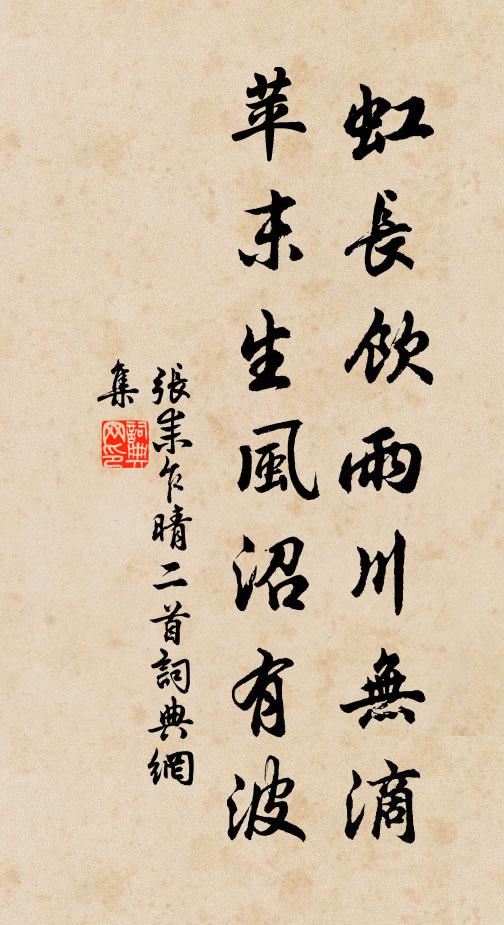 虹長飲雨川無滴
苹末生風沼有波
張耒乍晴二首詞典網
集
詞典网印